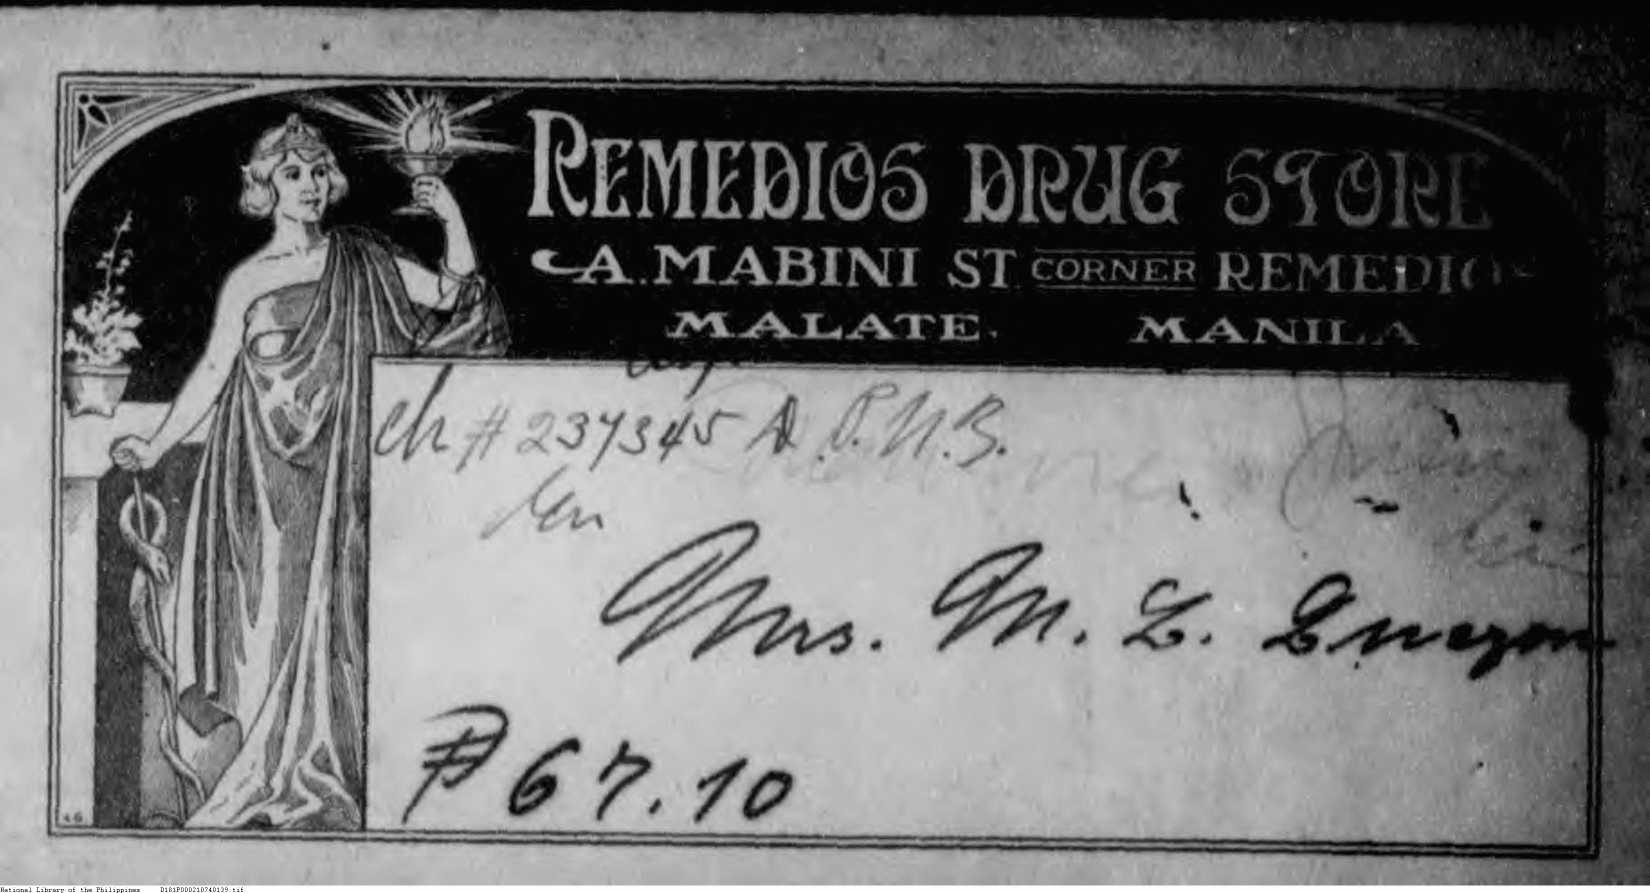 REMEDIOS DRUG STORE
A. MABINI ST CORNER REMEDIOS
MALATE. MANILA
ch # 237345 A P.N.B.
Mrs. M. L. Quezon
₱ 67.10
National Library of the Philippines D181P000210740139.tif